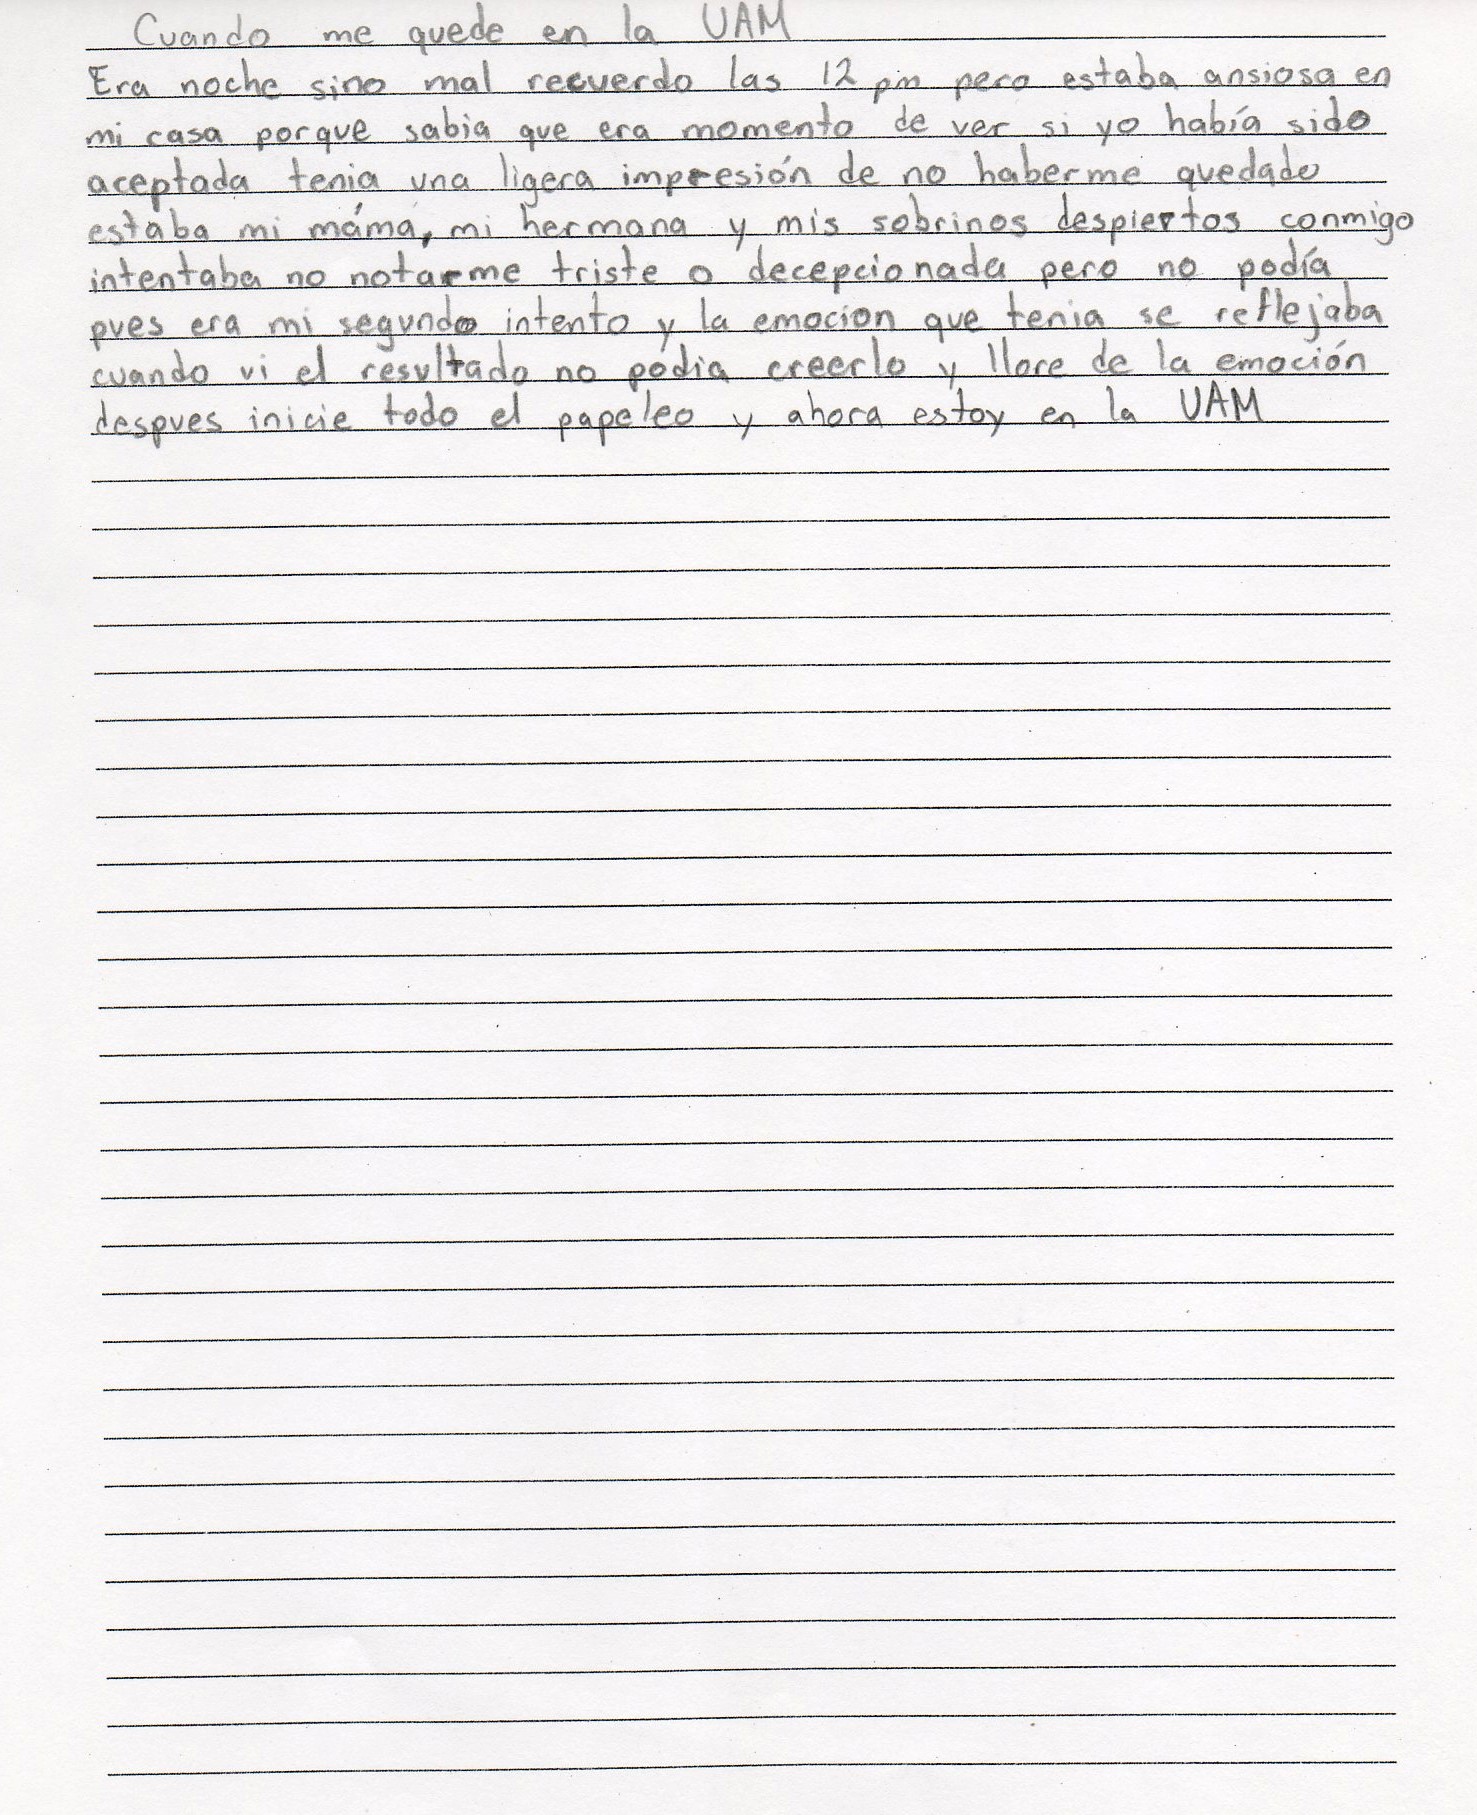 Cuando me quede en la UAM
Era noche sino mal recuerdo las 12 pm pero estaba ansiosa en
mi casa porque sabia que era momento de ver si yo había sido
aceptada tenia una ligera impresión de no haberme quedado
estaba mi máma, mi hermana y mis sobrinos despiertos conmigo
intentaba no notarme triste o decepcionada pero no podía
pues era mi segundo intento y la emocion que tenia se reflejaba
cuando vi el resultado no podia creerlo y llore de la emoción
despues inicie todo el papeleo y ahora estoy en la UAM